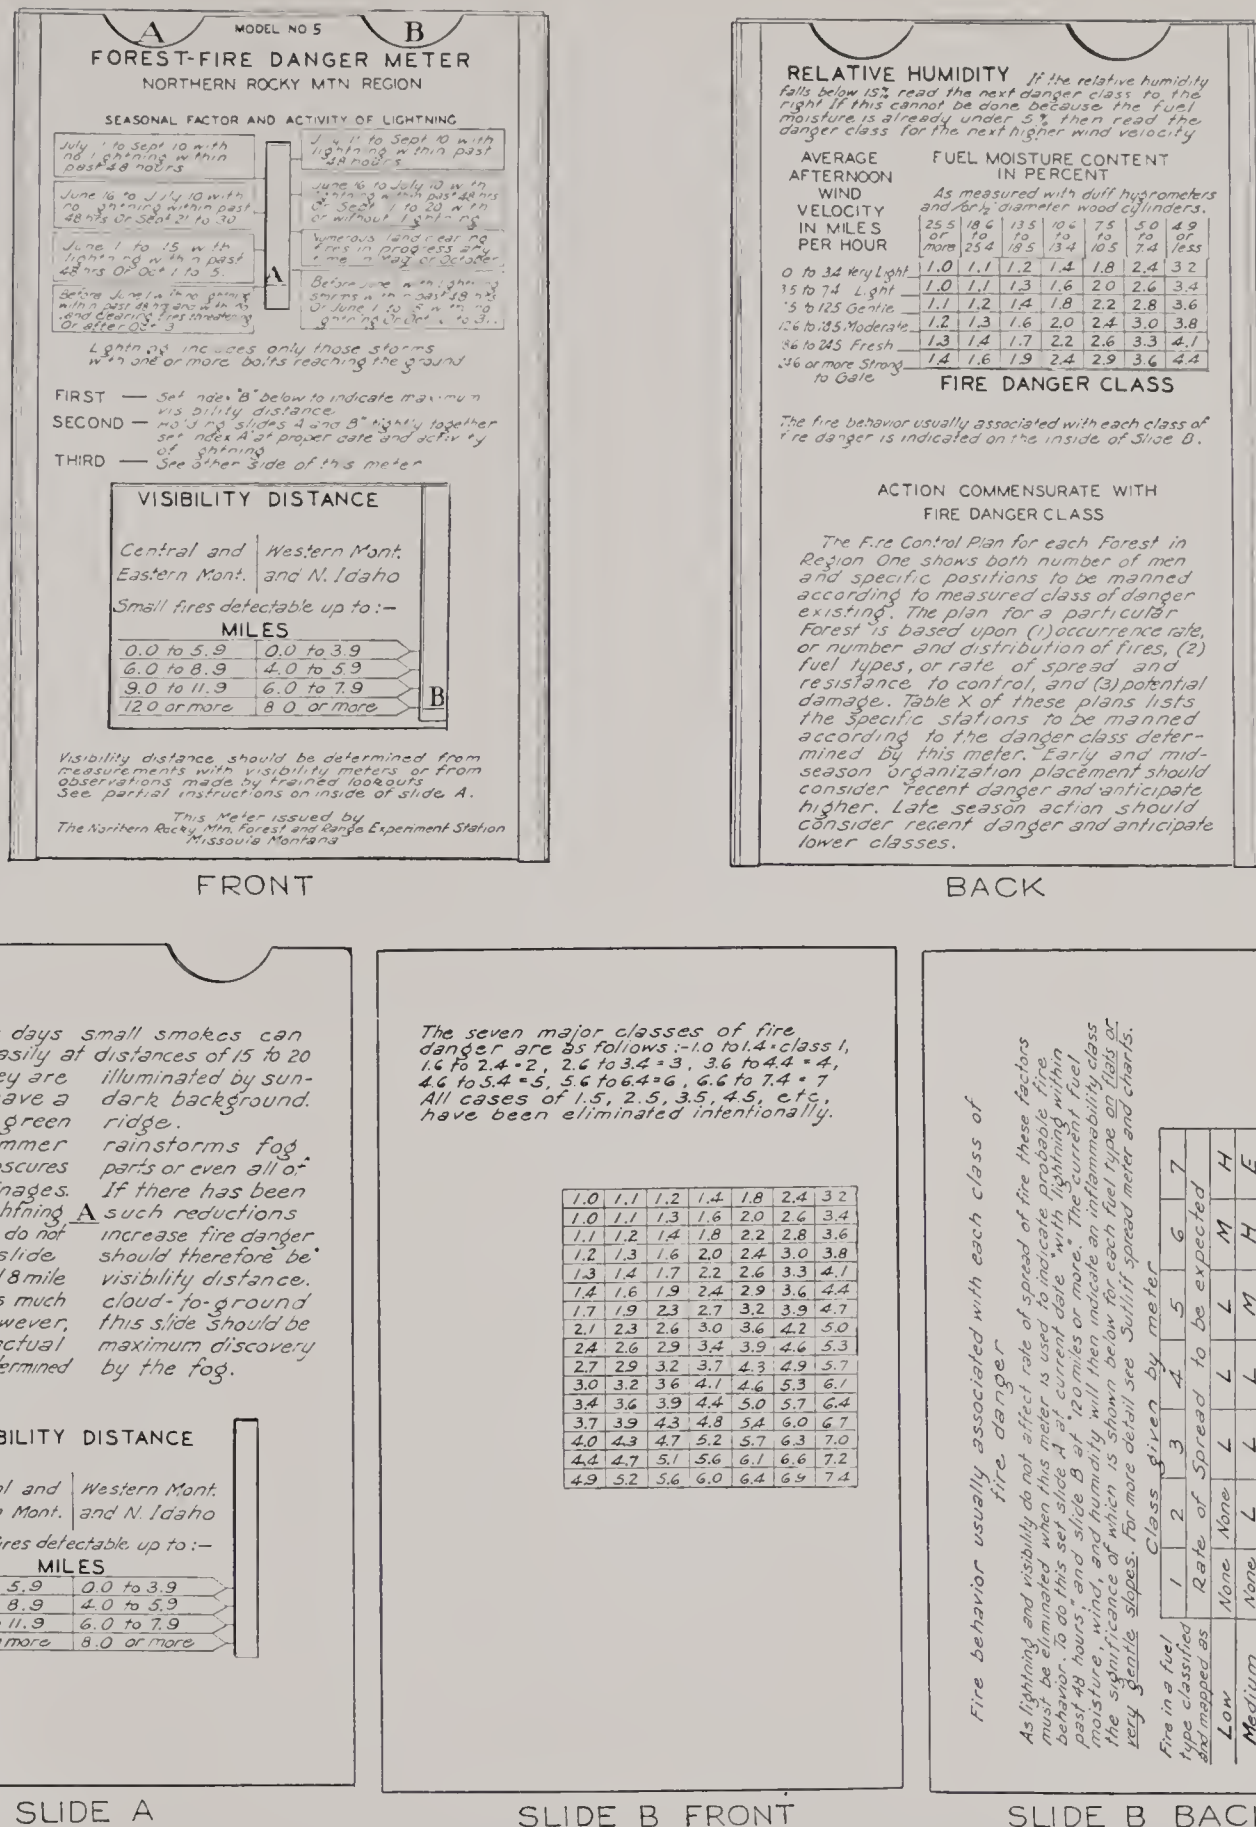 A
MODEL NO 5
B
FOREST-FIRE DANGER METER
NORTHERN ROCKY MTN REGION
SEASONAL FACTOR AND ACTIVITY OF LIGHTNING
July to Sept 10 with
no lightning within
past 48 hours
June 16 to July 10 with
no lightning within past
48 hrs Or Sept 21 to 30
June 1 to 15 with
lightning within past
48 hrs Or Oct 1 to 5.
Before June 1 with no
within past 48 hrs and with no
land clearing fires threatening
Or after Oct
A
to Sept 10 with
lightning within past
48 hours
June 16 to July 10 with
lightning within past 48 hrs
Or Sept 1 to 20 with
or without lightning
Numerous land clearing
fires in progress any
time in May or October
Before June with
storms within past 48 hrs
Or June 1 to with no
lightning Or Oct to
Lightning includes only those storms
with one or more bolts reaching the ground
FIRST — Set index "B" below to indicate maximum
visibility distance
SECOND — Holding slides A and B tightly together
set index A at proper date and activity
of lightning
THIRD — See other side of this meter
VISIBILITY DISTANCE
Central and Western Mont.
Eastern Mont. and N. Idaho
Small fires detectable up to :–
MILES
0.0 to 5.9 0.0 to 3.9
6.0 to 8.9 4.0 to 5.9
9.0 to 11.9 6.0 to 7.9
12 0 or more 8 0 or more
B
Visibility distance should be determined from
measurements with visibility meters or from
observations made by trained lookouts
See partial instructions on inside of slide A.
This Meter issued by
The Northern Rocky Mtn. Forest and Range Experiment Station
Missoula Montana
FRONT
RELATIVE HUMIDITY If the relative humidity
falls below 15% read the next danger class to the
right If this cannot be done because the fuel
moisture is already under 5% then read the
danger class for the next higher wind velocity
AVERAGE
AFTERNOON
WIND
VELOCITY
IN MILES
PER HOUR
FUEL MOISTURE CONTENT
IN PERCENT
As measured with duff hygrometers
and/or ½" diameter wood cylinders.
25 5 18 6 13 5 10 6 7 5 5 0 4 9
or to to to to to or
more 25 4 18 5 13 4 10 5 7 4 less
0 to 3.4 Very Light 1.0 1.1 1.2 1.4 1.8 2.4 3 2
3 5 to 7 4 Light 1.0 1.1 1.3 1.6 2 0 2.6 3.4
5 to 12 5 Gentle 1.1 1.2 1.4 1.8 2.2 2.8 3.6
12 6 to 18.5 Moderate 1.2 1.3 1.6 2.0 2.4 3.0 3.8
86 to 24.5 Fresh 1.3 1.4 1.7 2.2 2.6 3.3 4.1
46 or more Strong 1.4 1.6 1.9 2.4 2.9 3.6 4.4
to Gale
FIRE DANGER CLASS
The fire behavior usually associated with each class of
fire danger is indicated on the inside of Slide B.
ACTION COMMENSURATE WITH
FIRE DANGER CLASS
The Fire Control Plan for each Forest in
Region One shows both number of men
and specific positions to be manned
according to measured class of danger
existing. The plan for a particular
Forest is based upon (1) occurrence rate,
or number and distribution of fires, (2)
fuel types, or rate of spread and
resistance to control, and (3) potential
damage. Table X of these plans lists
the specific stations to be manned
according to the danger class deter-
mined by this meter. Early and mid-
season organization placement should
consider recent danger and anticipate
higher. Late season action should
consider recent danger and anticipate
lower classes.
BACK
days small smokes can
asily at distances of 15 to 20
ey are illuminated by sun-
ave a dark background.
green ridge.
mmer rainstorms fog
scures parts or even all of
nages. If there has been
htning A such reductions
do not increase fire danger
slide should therefore be
8 mile visibility distance.
s much cloud-to-ground
owever, this slide should be
ctual maximum discovery
ermined by the fog.
BILITY DISTANCE
l and Western Mont.
Mont. and N. Idaho
ires detectable up to :–
MILES
5.9 0.0 to 3.9
8.9 4.0 to 5.9
11.9 6.0 to 7.9
more 8.0 or more
SLIDE A
The seven major classes of fire
danger are as follows :- 1.0 to 1.4 = class 1,
1.6 to 2.4 = 2, 2.6 to 3.4 = 3, 3.6 to 4.4 = 4,
4.6 to 5.4 = 5, 5.6 to 6.4 = 6, 6.6 to 7.4 = 7
All cases of 1.5, 2.5, 3.5, 4.5, etc,
have been eliminated intentionally.
1.0 1.1 1.2 1.4 1.8 2.4 3 2
1.0 1.1 1.3 1.6 2.0 2.6 3.4
1.1 1.2 1.4 1.8 2.2 2.8 3.6
1.2 1.3 1.6 2.0 2.4 3.0 3.8
1.3 1.4 1.7 2.2 2.6 3.3 4.1
1.4 1.6 1.9 2.4 2.9 3.6 4.4
1.7 1.9 2.3 2.7 3.2 3.9 4.7
2.1 2.3 2.6 3.0 3.6 4.2 5.0
2.4 2.6 2.9 3.4 3.9 4.6 5.3
2.7 2.9 3.2 3.7 4.3 4.9 5.7
3.0 3.2 3.6 4.1 4.6 5.3 6.1
3.4 3.6 3.9 4.4 5.0 5.7 6.4
3.7 3.9 4.3 4.8 5.4 6.0 6.7
4.0 4.3 4.7 5.2 5.7 6.3 7.0
4.4 4.7 5.1 5.6 6.1 6.6 7.2
4.9 5.2 5.6 6.0 6.4 6.9 7.4
SLIDE B FRONT
Fire behavior usually associated with each class of
fire danger
As lightning and visibility do not affect rate of spread of fire these factors
must be eliminated when this meter is used to indicate probable fire
behavior. To do this set slide A at current date "with lightning within
past 48 hours," and slide B at "12.0 miles or more." The current fuel
moisture, wind, and humidity will then indicate an inflammability class
the significance of which is shown below for each fuel type on flats or
very gentle slopes. For more detail see Sutliff spread meter and charts.
Class given by meter
Fire in a fuel
type classified
and mapped as
1 2 3 4 5 6 7
Rate of Spread to be expected
Low None None L L L M H
Medium None L L L M H E
SLIDE B BACK